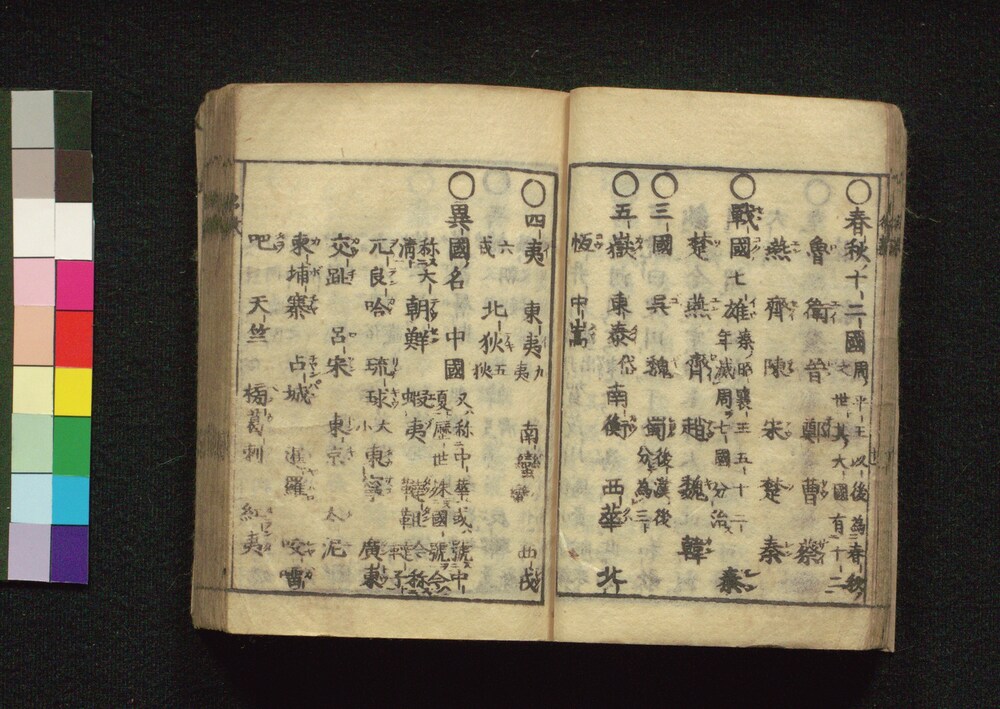 ○春秋十二國 周平王以後為春秋之世其大國有十二
魯 衛 晉 鄭 曹 蔡
燕 齊 陳 宋 楚 秦
○戰國七雄 秦昭襄王五十二年滅周七國分治 秦
楚 燕 齊 趙 魏 韓
○三國 呉 魏 蜀 後漢後分為三
○五嶽 東泰 岱 南 西華 北
恆 中嵩
○四夷 東夷 九夷 南蠻 西戎
六戎 北狄 五狄
○異國名 中國 又称中華或號中夏歴世殊國號今
称大清 朝鮮 蝦夷 韃靼 今称
兀良哈 琉球 大 小 東寧 廣東
交趾 呂宋 東京
東埔寨 占城 暹羅 咬𠺕
吧 天竺 葛剌 紅夷